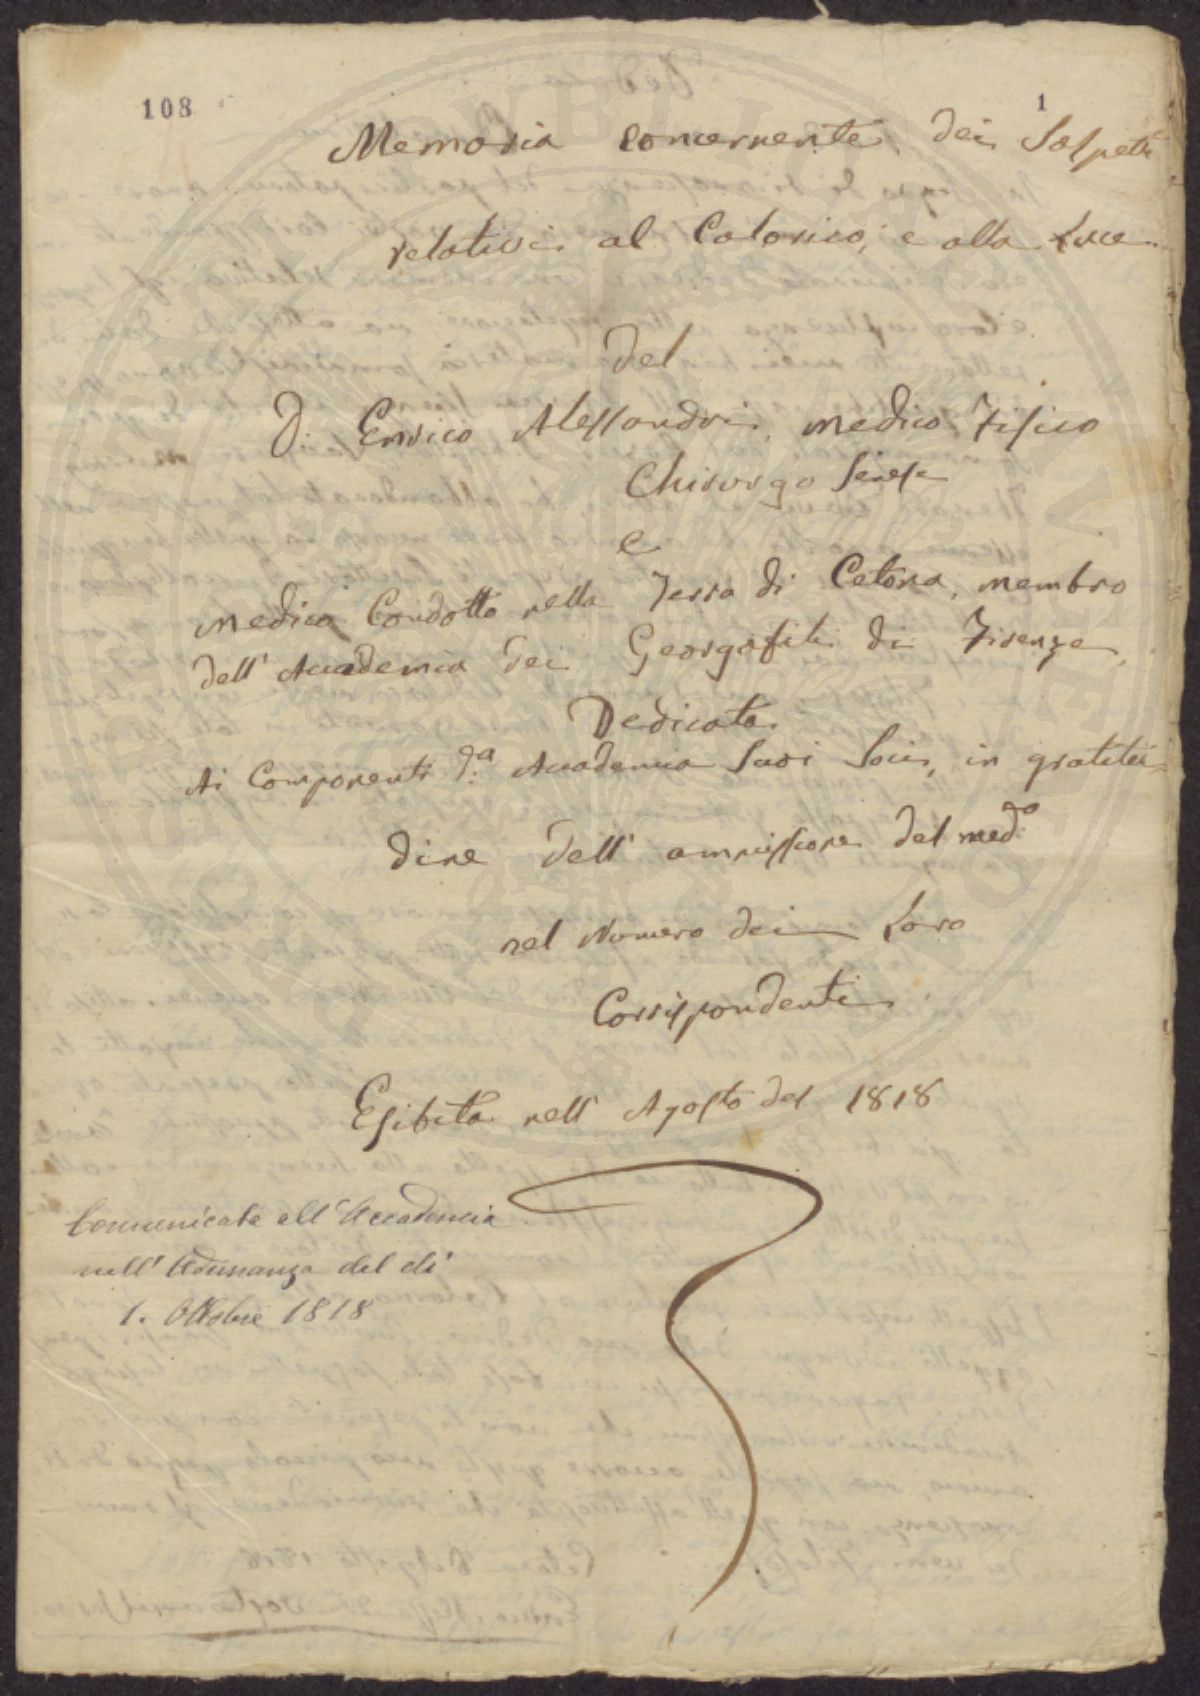 108
1
Memoria concernente dei Sospetti
relativi al Calorico, e alla Luce
del
D. Enrico Alessandri, medico Fisico
Chirurgo Senese
e
medico Condotto nella Terra di Cetona, membro
dell' Accademia dei Georgofili di Firenze,
Dedicata
Ai Componenti d.ª Accademia Suoi Socii, in gratitu=
dine dell' ammissione del med.º
nel Numero dei Loro
Corrispondenti
Esibita nell' Agosto del 1818
Comunicata all' Accademia
nell' Adunanza del dì
1. Ottobre 1818